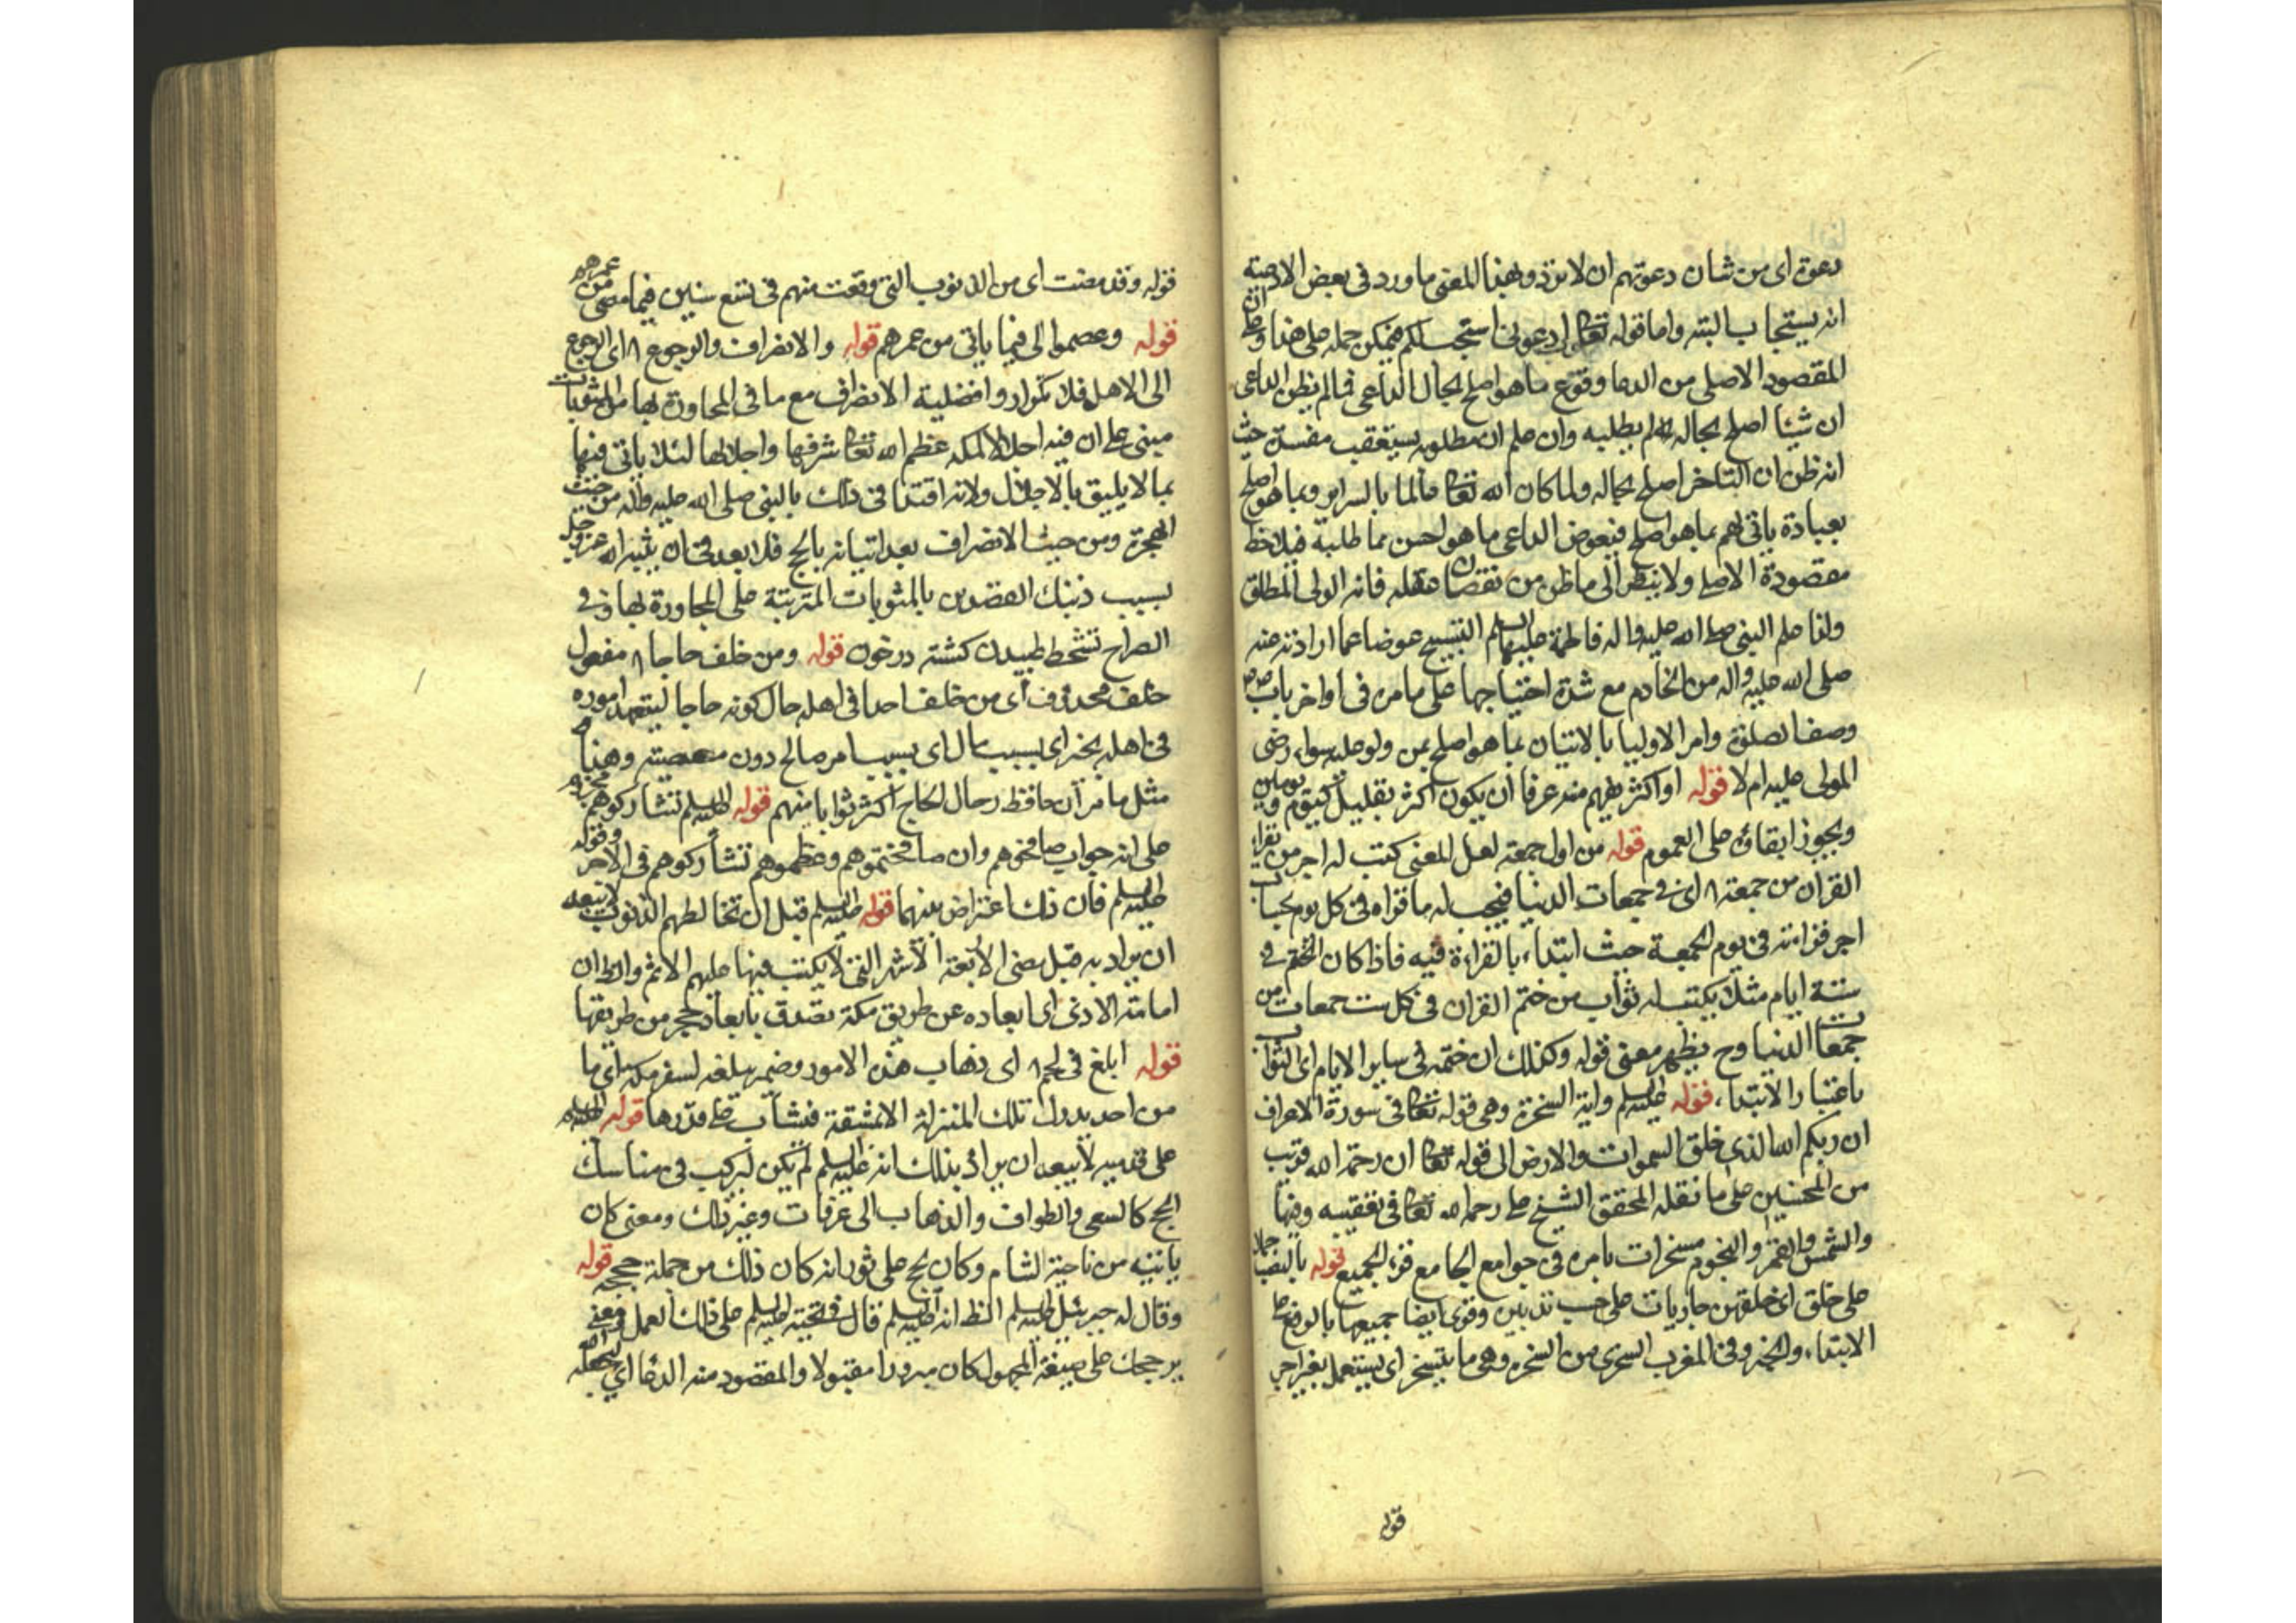 دعوة اى من شان دعوتهم ان لا ترد وبهذا المعنى ما ورد فى بعض الادعية
انه يستجاب البته واما قوله تعالى ادعونى استجب لكم فيمكن حمله على هذا وعلى ان
المقصود الاصلى من الدعا وقوع ما هو اصلح لحال الداعى فما لم يظن الداعى
ان شيئا اصلح بحاله لم يطلبه وان علم ان مطلوبه يستعقب مفسدة حيث
انه ظن ان التاخر اصلح بحاله ولما كان الله تعالى عالما بالسراير وبما هو اصلح
بعباده ياتى لهم بما هو اصلح فيعوض الداعى ما هو احسن مما طلبه فيلاحظ
مقصوده الاصلى ولا ينظر الى ما ظن من نقصان عقله فانه الولى المطلق
ولذا علم النبى صلى الله عليه واله فاطمة عليها السلم التسبيح عوضا عما ارادته منه
صلى الله عليه واله من الخادم مع شدة احتياجها على ما مر فى اواخر باب
وصف الصلوة وامر الاوليا بالاتيان بما هو اصلح بمن ولو عليه سواء رضى
المولى عليه ام لا قوله او اكثر يفهم منه عرفا ان يكون اكثر بقليل كيوم ويومان
ويجوز ابقاؤه على العموم قوله من اول جمعة لعل المعنى كتب له اجر من يقرأ
القران من جمعة ٨ اى فى جمعات الدنيا فيجب له ما قراه فى كل يوم بحساب
اجر قراءته فى يوم الجمعة حيث ابتداء بالقراءة فيه فاذا كان الختم فى
ستة ايام مثلا يكتب له ثواب من ختم القران فى كل ست جمعات من
جمعات الدنيا وح يظهر معنى قوله وكذلك ان ختمه فى ساير الايام اى الثواب
باعتبار الابتداء قوله عليه السلم واية السخرة وهى قوله تعالى فى سورة الاعراف
ان ربكم الله الذى خلق السموات والارض الى قوله تعالى ان رحمة الله قريب
من المحسنين على ما نقله المحقق الشيخ على رحمه الله تعالى فى تعقيبه وفيها
والشمس والقمر والنجوم مسخرات بامره فى جوامع الجامع قرء الجميع قوله بالنصب حملا
على خلق اى خلقهن جاريات على حسب تدبير وقرى ايضا جميعها بالرفع على
الابتداء والخبر وفى المغرب السخرى من السخره وهى ما يتسخر اى يستعمل بغير اجر
قوله
قوله وقد مضت اى من الذنوب التى وقعت منهم فى تسع سنين فيما مضى من عمرهم
قوله وعصموا الى فيما ياتى من عمرهم قوله والانصراف والرجوع ٨ اى الرجوع
الى الاهل فلا تكرار وافضلية الانصراف مع ما فى المجاورة بها من المثوبات
مبنى على ان فيه اجلالا لمكه عظم الله تعالى شرفها واجلالها لئلا ياتى فيها
بما لا يليق بالاجلال ولانه اقتدا فى ذلك بالنبى صلى الله عليه واله من حيث
الهجرة ومن حيث الانصراف بعد اتيانه بالحج فلا بعد فى ان يثيبه الله عز وجل
بسبب ذينك القصدين بالمثوبات المترتبة على المجاورة بها وفى
الصراح تشحط طپيدن كشته در خون قوله ومن خلف حاجا ٨ مفعول
خلف محذوف اى من خلف احدا فى اهله حال كونه حاجا ليتعهد اموره
فى اهله بخير اى بسبب مال اى بسبب امر صالح دون معصيته وهذا
مثل ما مر ان حافظ رحال الحاج اكثر ثوابا منهم قوله عليه السلم تشاركوهم مجزوم
على انه جواب صافحوهم وان صافحتموهم وعظموهم تشاركوهم فى الاجر وقوله
عليه السلم فان ذلك اعتراض بينهما قوله عليه السلم قبل ان تخالطهم الذنوب لا يبعد
ان يراد به قبل مضى الاربعة الاشهر التى لا يكتب فيها عليهم الاثم والظ ان
اماطة الاذى اى ابعاده عن طريق مكة تصدق بابعاد حجر من طريقها
قوله ابلغ فى لحم ٨ اى ذهاب هذه الامور وضمير يبلغه لسفر مكه اى ما
من احد يدرك تلك المنزلة الا بمشقة فيثاب على قدرها قوله عليه السلم
على قدميه لا يبعد ان يراد بذلك انه عليه السلم لم يكن ليركب فى مناسك
الحج كالسعى والطواف والذهاب الى عرفات وغير ذلك ومعنى كان
ياتيه من ناحية الشام وكان يحج على ثور انه كان ذلك من جملة حججه قوله
وقال له جبرئيل عليه السلم الظ انه عليه السلم قال فى تحية عليه السلم على ذلك العمل ومعنى
بر حجك على صيغة المجهول كان مبرورا مقبولا والمقصود منه الدعا اى جعله الله